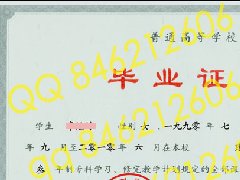 普通高等学校
毕业证
学生 性别 女 一九九〇年 七
九 月至二〇一〇年 六 月在本校
叁 年制专科学习，修完教学计划规定的全部
QQ 846212606
QQ 846212606